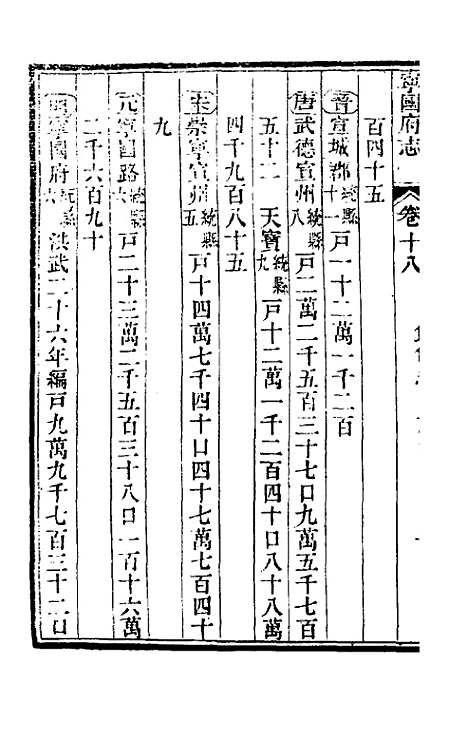 寧國府志
卷十八
百四十五
晉宣城郡統縣十一戶一十二萬一千二百
唐武德宣州統縣八戶二萬二千五百三十七口九萬五千七百
五十二 天寶統縣九戶十二萬一千二百四十口八十八萬
四千九百八十五
宋崇寧宣州統縣五戶十四萬七千四十口四十七萬七百四十
九
元寧國路統縣六戶二十三萬二千五百三十八口一百十六萬
二千六百九十
明寧國府統縣六洪武二十六年編戶九萬九千七百三十二口